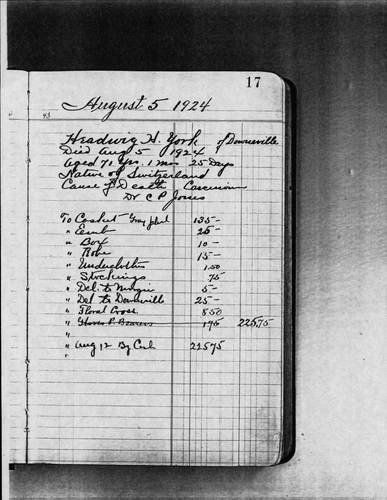 17
August 5 1924
43
Hradwig H. York of Downieville
Died Aug 5 1924
Aged 71 Yrs. 1 mos 25 Days
Native of Switzerland
Cause of Death Carcinoma
Dr C P Jones
To Casket Gray plush 135-
" Emb 25-
" Box 10-
" Robe 15-
" Underclothes 1.50
" Stockings 75
" Del. to 5-
" Del to Downieville 25-
" Floral Cross 8.50
" Gloves P. Bearers 1 75 225.75
" Aug 12 By Cash 225 75
"